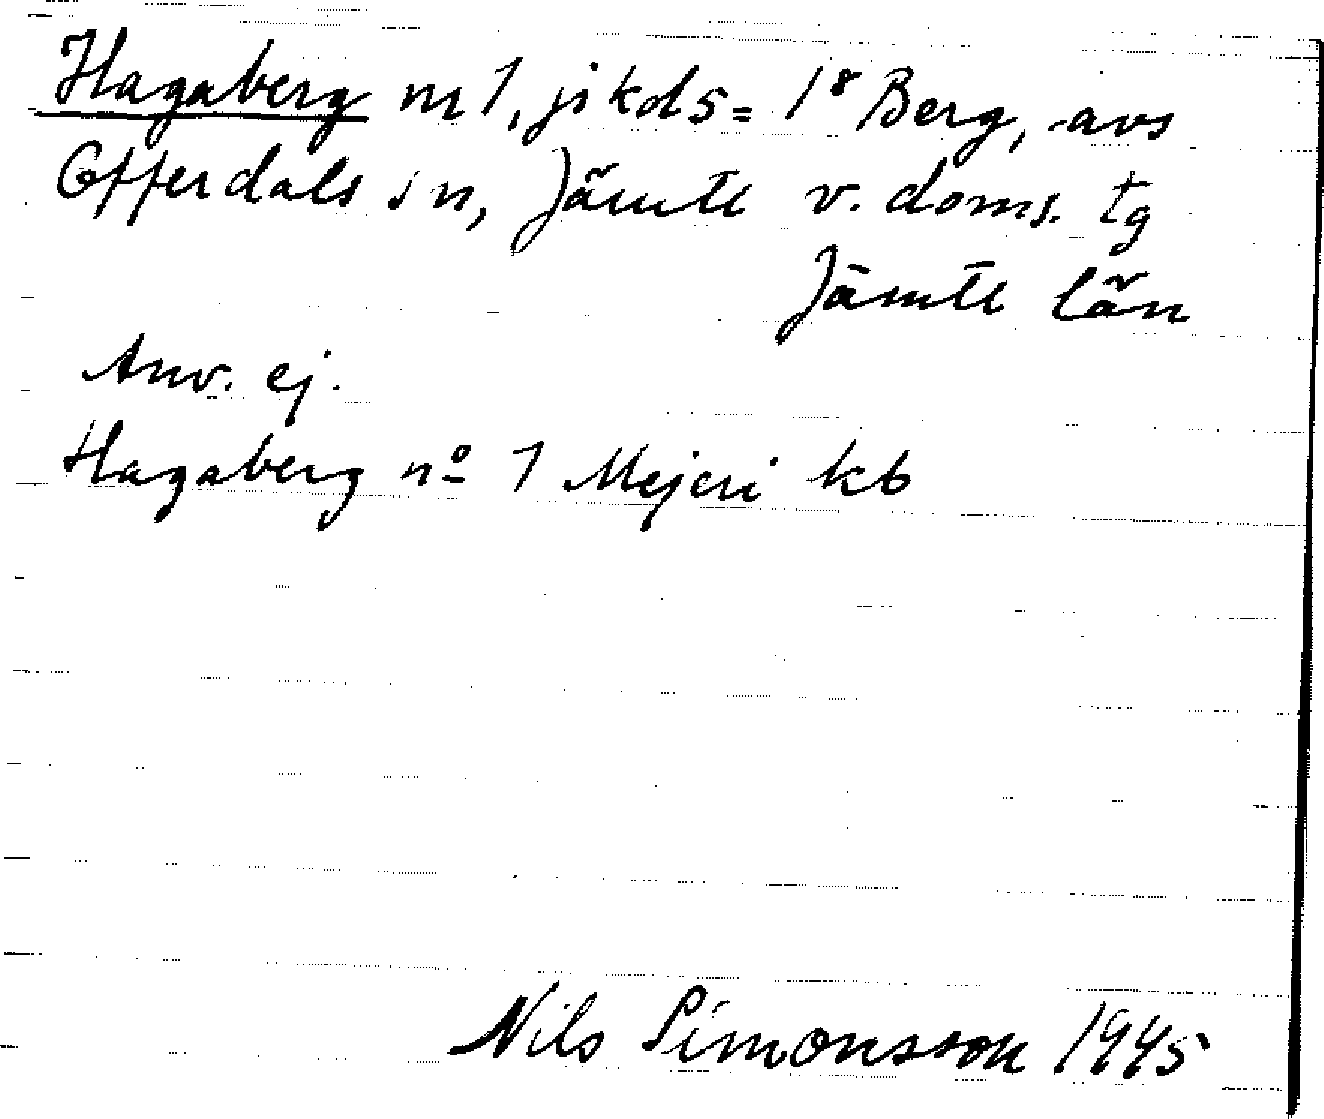 Hagaberg nr 1, jikds= 1⁸ Berg, avs
Offerdals sn, Jämtl v. doms. tg
Jämtl län
Anv. ej.
Hagaberg nº 1 Mejeri kb
Nils Simonsson 1945